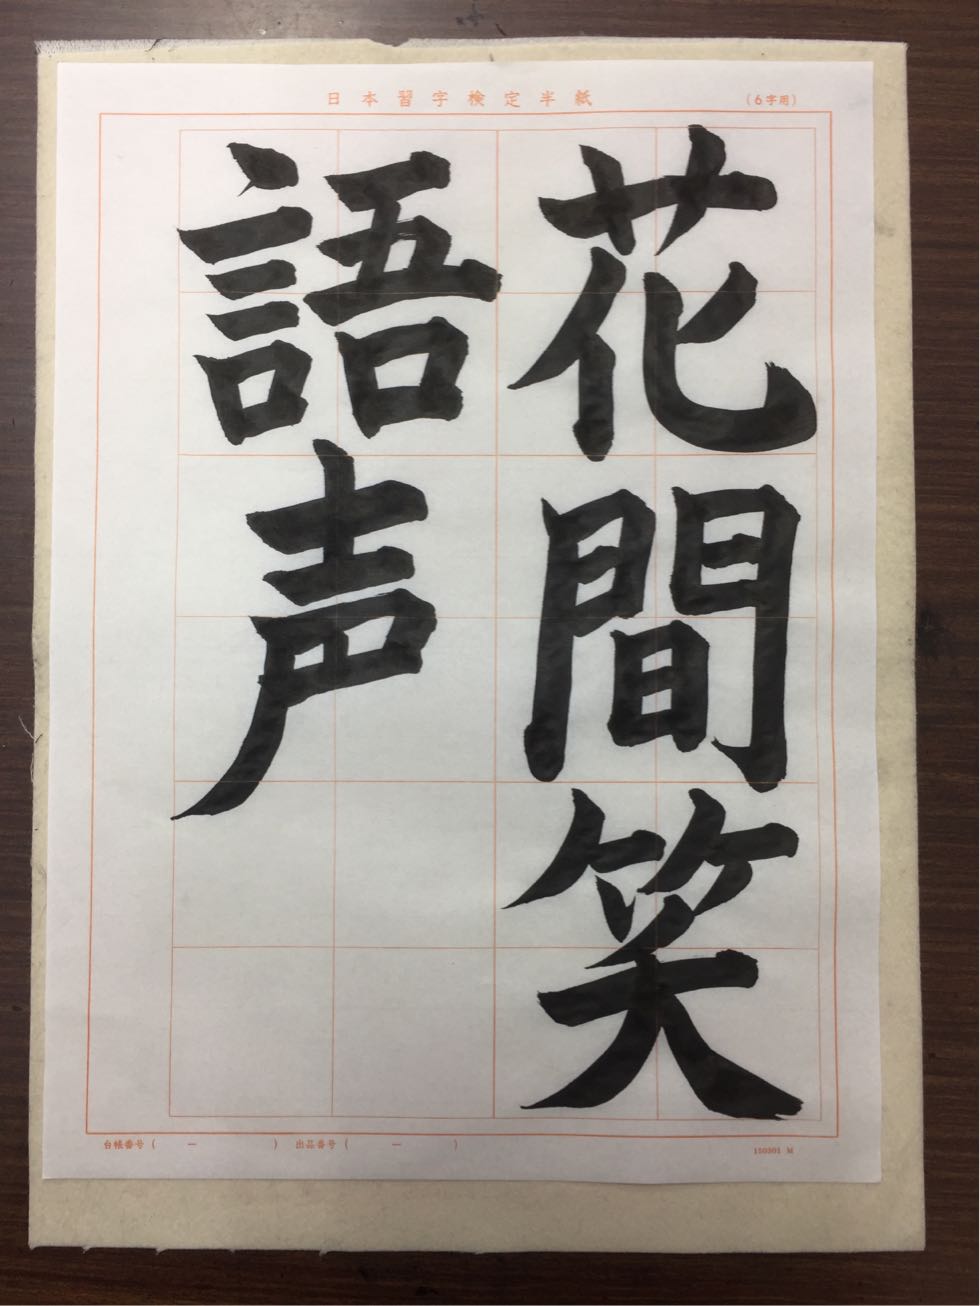 日本習字検定半紙
(6字用)
花間笑
語声
台帳番号( － )
出品番号( － )
150301 M